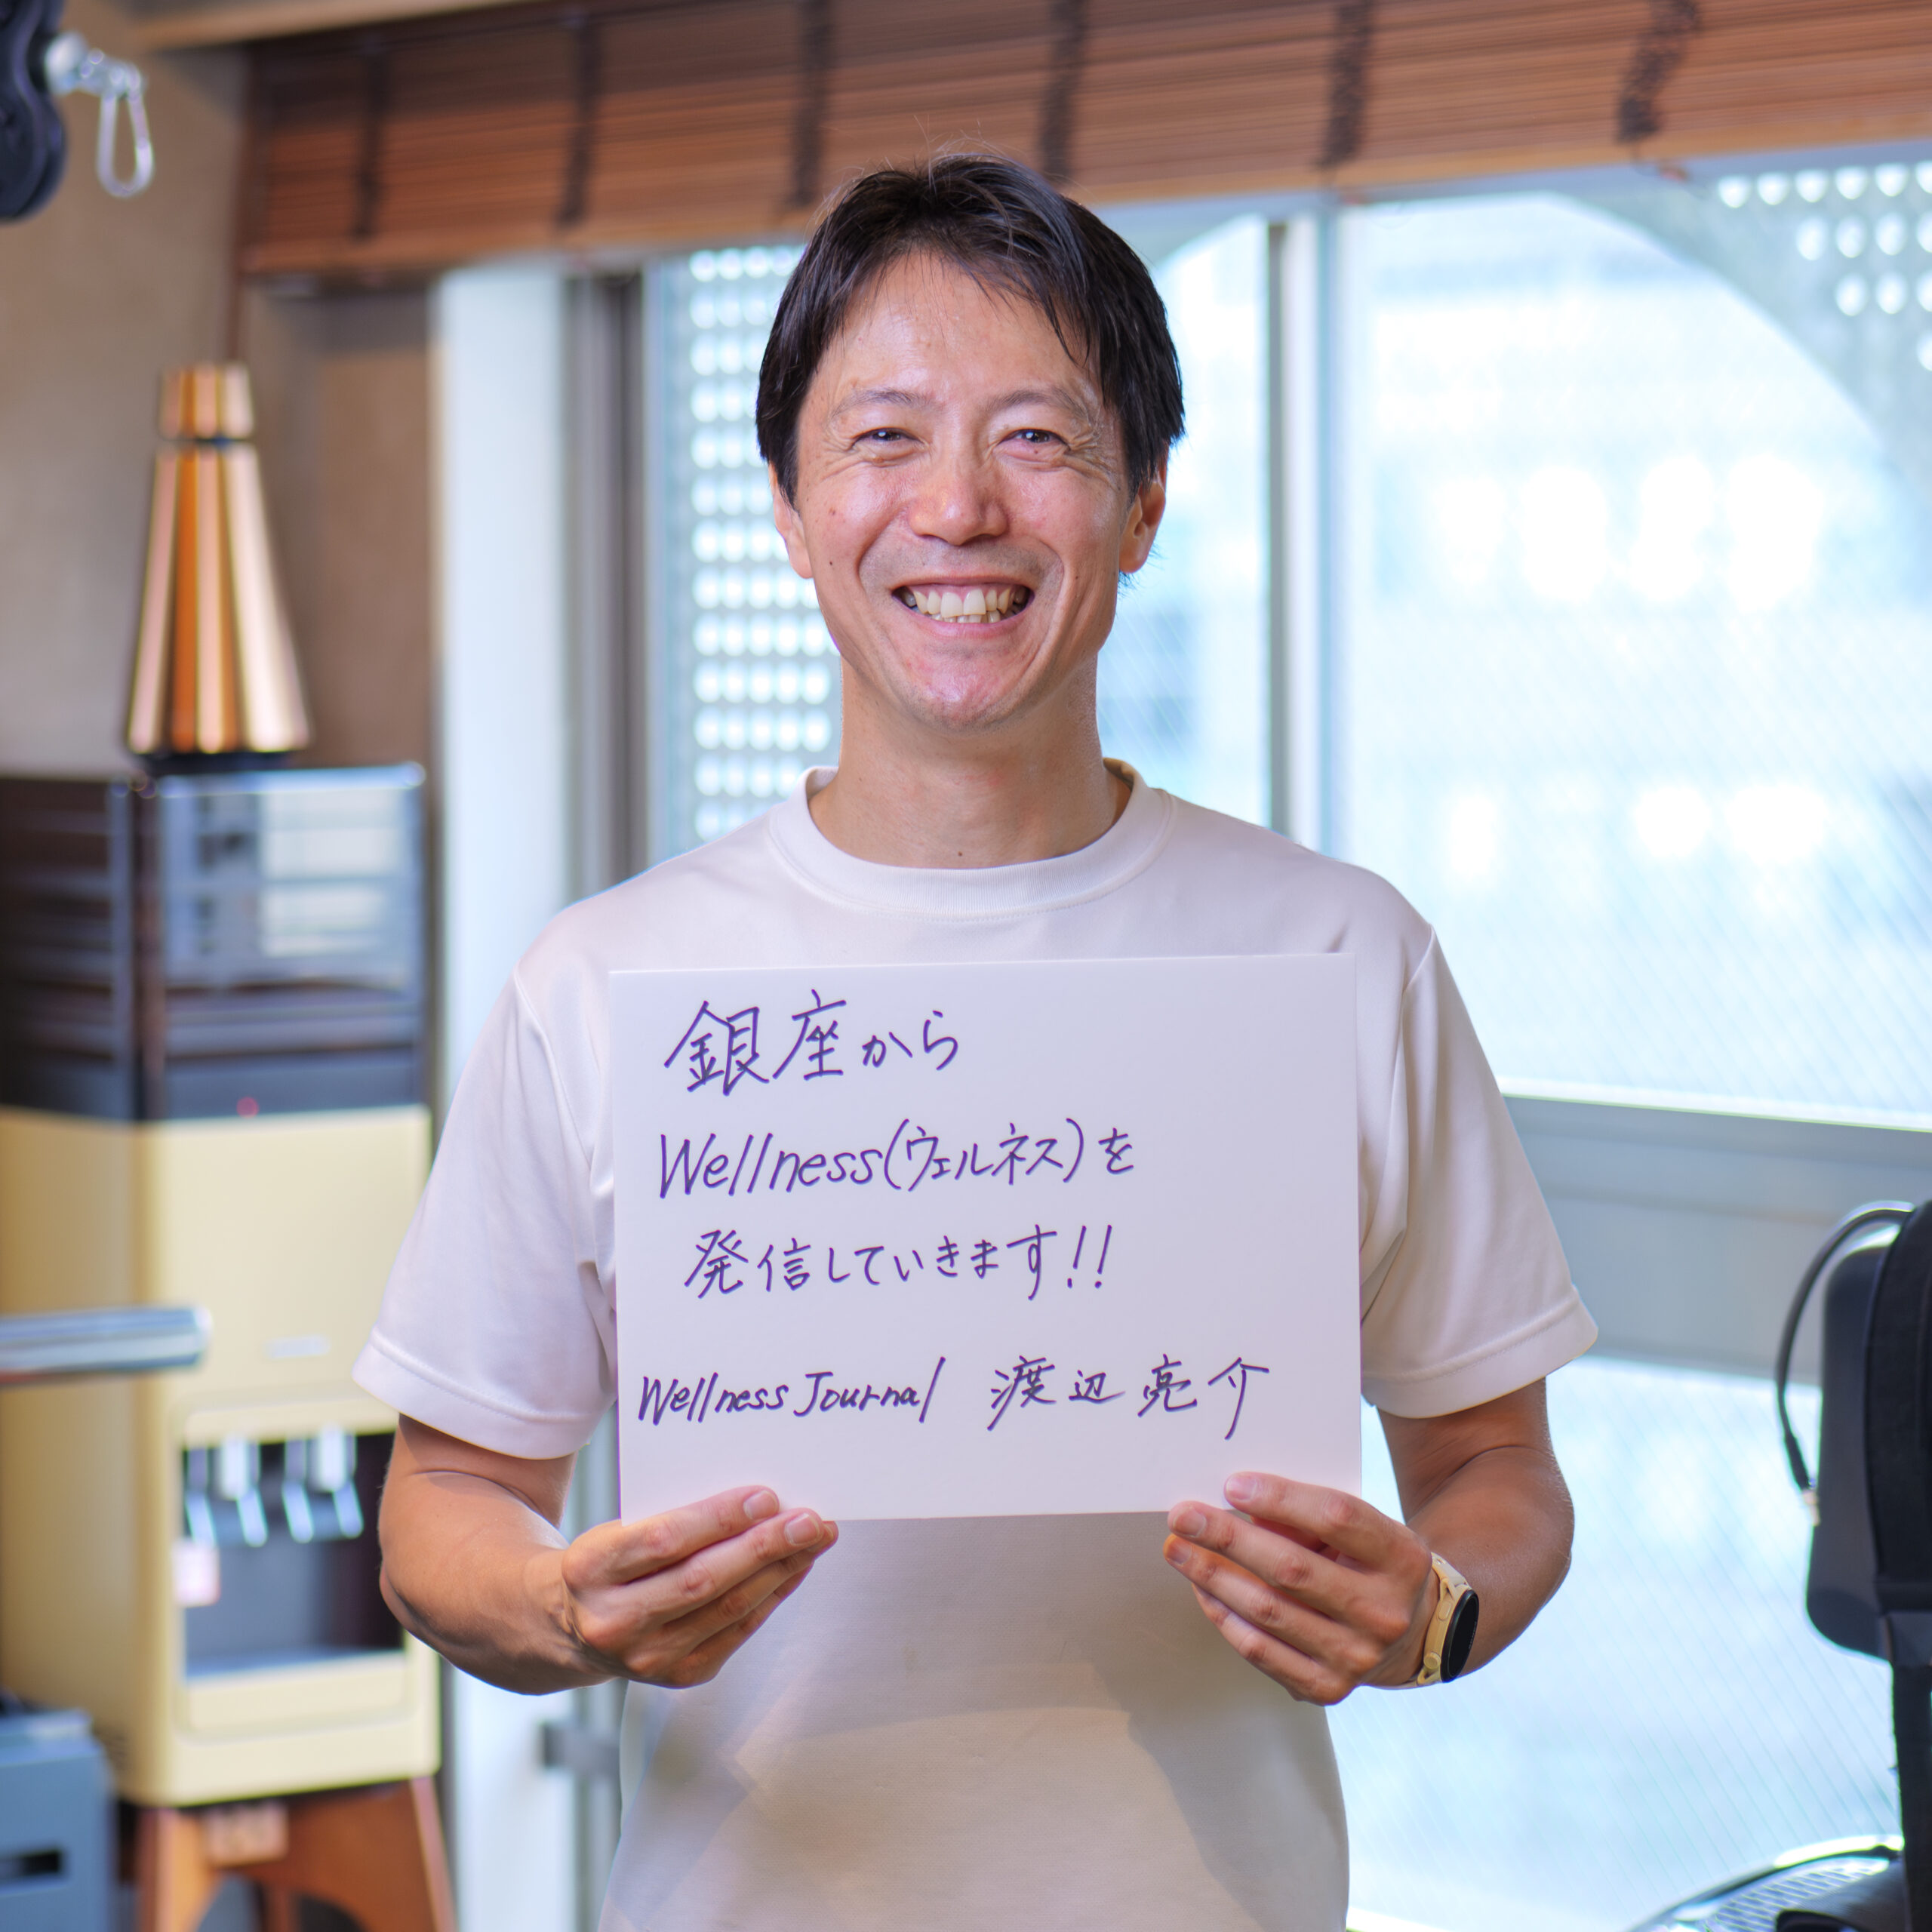 銀座から
Wellness(ウェルネス)を
発信していきます!!
Wellness Journal 渡辺 亮介